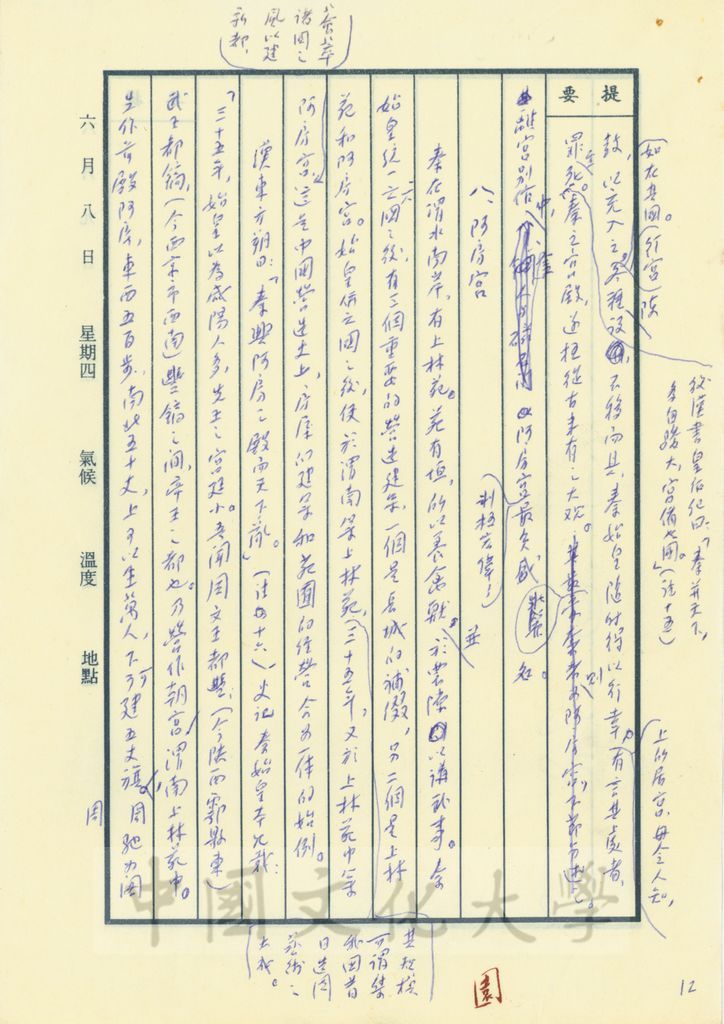 提要
六月八日　星期四　氣候　溫度　地點
如在其國(行宮)陵
鼓,以充入之各種設　,不移而具。秦始皇隨時得以行幸,有言其處者,
罪死。秦之宮殿,遂極從古未有之大观。
離宮別館中,　阿房宮最負盛名。
上的居宮,毋令人知,
後漢書皇后紀曰:「秦并天下,
多自驕大,宮備七國。」(註十五)
八、阿房宮
秦在渭水南岸,有上林苑。苑有垣,所以養禽獸,並於農隙以講武事。秦
始皇統一六國之後,有三個重要的營造建築,一個是長城的補綴,另二個是上林
苑和阿房宮。始皇併六國之後,使於渭南築上林苑,三十五年,又於上林苑中築
阿房宮,這是中國營造史上,房屋的建築和苑囿的經營合為一体的始例。
其規模
可謂集
我國昔
日造園
藝術之
大成。
漢東方朔曰:「秦興阿房之殿而天下亂。」(註十六)史記秦始皇本紀載:
「三十五年,始皇以為咸陽人多,先王之宮廷小。吾聞周文王都豐,(今陝西鄠縣東)
武王都鎬,(今西京市西南)豐鎬之間,帝王之都也。乃營作朝宮渭南上林苑中。
先作前殿阿房,東西五百步,南北五十丈,上可以坐萬人,下可建五丈旗。周馳為閣
周
諸國之
風以建
新都,
園
12
中國文化大學